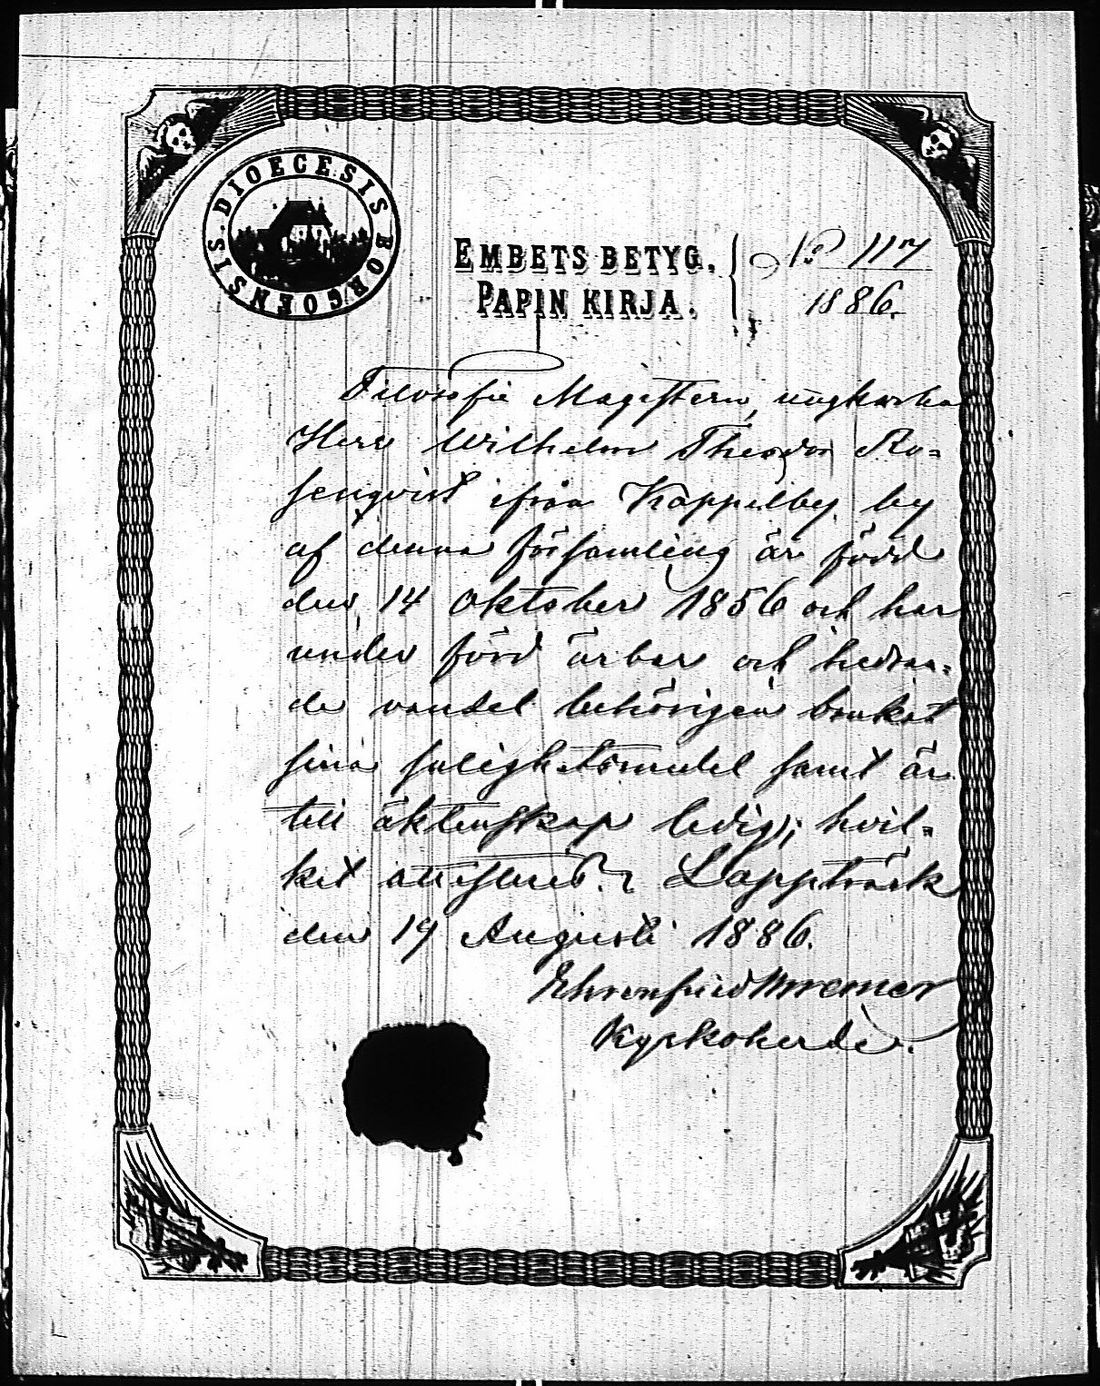 DIOECESIS BORGOENSIS.
EMBETS BETYG.
PAPIN KIRJA.
No 117
1886.
Filosofie Magistern, ungkarlen
Herr Wilhelm Theodor Ro=
senqvist ifrån Kappelby by
af denna församling är född
den 14 Oktober 1856 och har
under förd ärbar och hedran=
de vandel behörigen brukat
sina salighetsmedel samt är
till äktenskap ledig; hvil=
ket attesteras. Lappträsk
den 19 Augusti 1886.
Ehrenfried Bremer
Kyrkoherde.